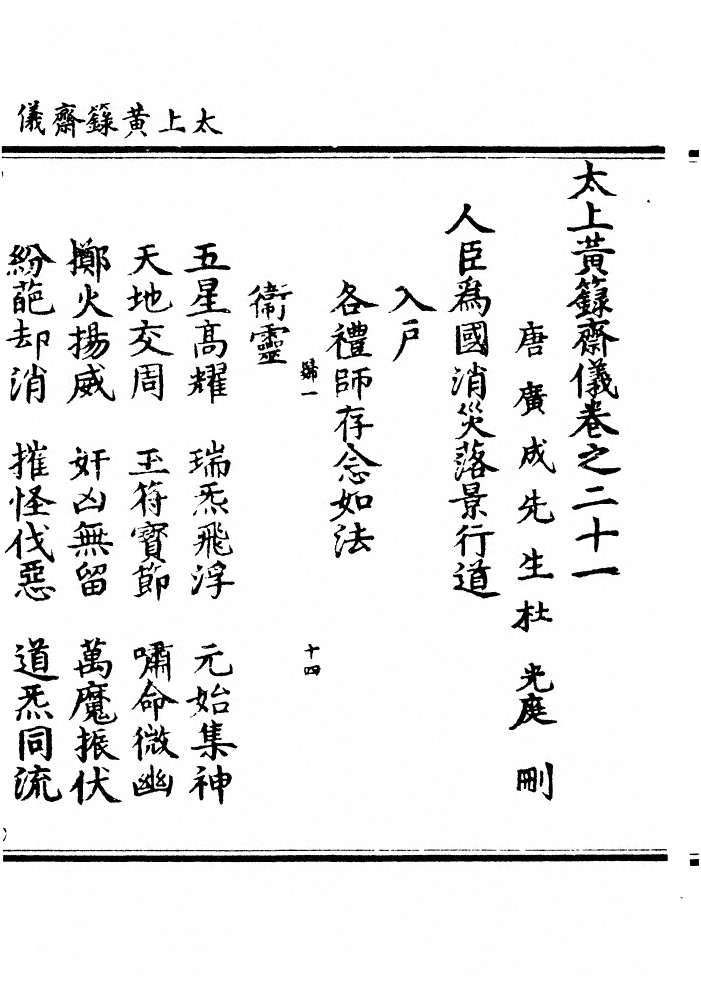 太上黃籙齋儀
太上黃籙齋儀卷之二十一
唐廣成先生杜光庭刪
人臣爲國消災落景行道
入戶
各禮師存念如法
歸一
十四
衛靈
五星高耀 瑞炁飛浮 元始集神
天地交周 玉符寶節 嘯命微幽
擲火揚威 奸凶無留 萬魔振伏
紛葩却消 摧怪伐惡 道炁同流